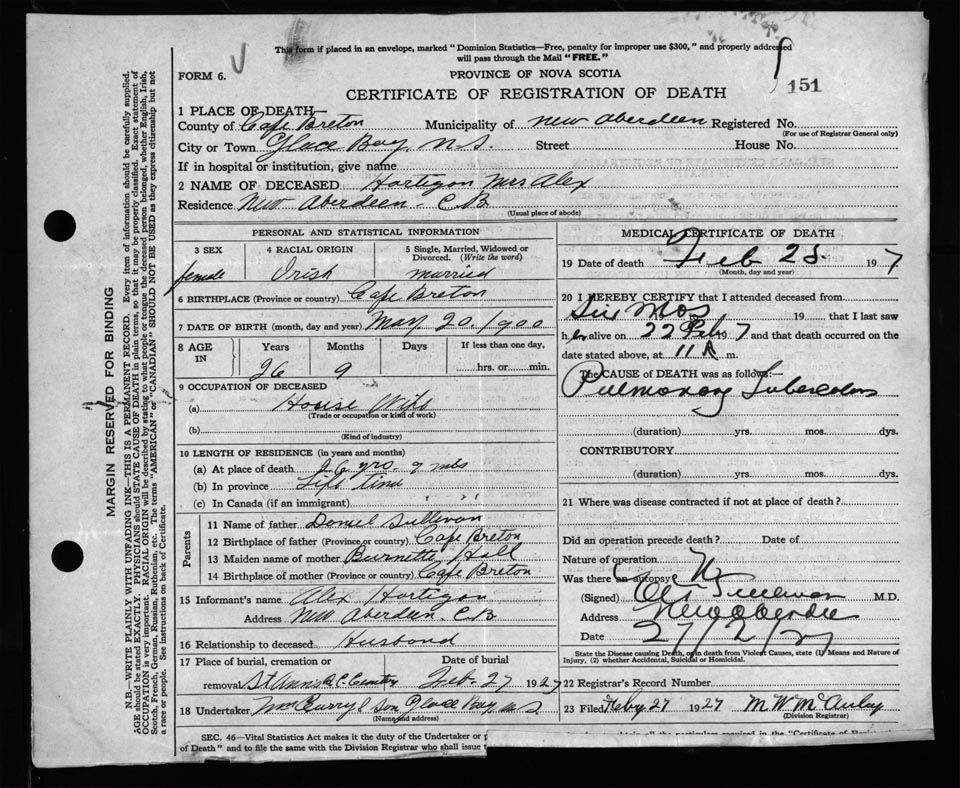 This form if placed in an envelope, marked "Dominion Statistics—Free, penalty for improper use $300," and properly addressed
will pass through the Mail "FREE."
FORM 6.
PROVINCE OF NOVA SCOTIA
151
CERTIFICATE OF REGISTRATION OF DEATH
1 PLACE OF DEATH—
County of Cape Breton Municipality of New Aberdeen Registered No.
(For use of Registrar General only)
City or Town Glace Bay N.S. Street House No.
If in hospital or institution, give name
2 NAME OF DECEASED Hartigan Mrs Alex
Residence New Aberdeen - C B
(Usual place of abode)
PERSONAL AND STATISTICAL INFORMATION
3 SEX 4 RACIAL ORIGIN 5 Single, Married, Widowed or
Divorced. (Write the word)
female Irish married
6 BIRTHPLACE (Province or country) Cape Breton
7 DATE OF BIRTH (month, day and year) May 20/900
8 AGE IN Years Months Days If less than one day,
26 9 hrs. or min.
9 OCCUPATION OF DECEASED
(a) House Wife
(Trade or occupation or kind of work)
(b)
(Kind of industry)
10 LENGTH OF RESIDENCE (in years and months)
(a) At place of death 26 yrs. 9 mos
(b) In province Life time
(c) In Canada (if an immigrant) " "
Parents
11 Name of father Daniel Sullivan
12 Birthplace of father (Province or country) Cape Breton
13 Maiden name of mother Burnette Hall
14 Birthplace of mother (Province or country) Cape Breton
15 Informant's name Alex Hartigan
Address New Aberdeen C.B
16 Relationship to deceased Husband
17 Place of burial, cremation or Date of burial
removal St Anns R.C. Feb. 27 1927
18 Undertaker Son Glace Bay N S
(Name and address)
SEC. 46—Vital Statistics Act makes it the duty of the Undertaker or
of Death" and to file the same with the Division Registrar who shall issue
MEDICAL CERTIFICATE OF DEATH
19 Date of death Feb 25 1927
(Month, day and year)
20 I HEREBY CERTIFY that I attended deceased from
Six Mos 19 that I last saw
her alive on 22 Feb 19 7 and that death occurred on the
date stated above, at 11 m.
The CAUSE OF DEATH was as follows:—
Pulmonary
(duration) yrs. mos. dys.
CONTRIBUTORY
(duration) yrs. mos. dys.
21 Where was disease contracted if not at place of death?
Did an operation precede death? Date of
Nature of operation
Was there an autopsy No
(Signed) M.D.
Address New Aberdeen
Date 27/2/27
State the Disease causing Death, or in death from Violent Causes, state (1) Means and Nature of
Injury, (2) whether Accidental, Suicidal or Homicidal.
22 Registrar's Record Number
23 Filed Feby 27 1927 M W McAulay
(Division Registrar)
MARGIN RESERVED FOR BINDING
N.B.—WRITE PLAINLY WITH UNFADING INK—THIS IS A PERMANENT RECORD. Every item of information should be carefully supplied.
AGE should be stated EXACTLY. PHYSICIANS should STATE CAUSE OF DEATH in plain terms, so that it may be properly classified. Exact statement of
OCCUPATION is very important. RACIAL ORIGIN will be described by stating to what people or tongue the deceased person belonged, whether English, Irish,
Scotch, French, German, Russian, Ruthenian, etc. The terms "AMERICAN" or "CANADIAN" SHOULD NOT BE USED as they express citizenship but not
a race or people. See instructions on back of Certificate.